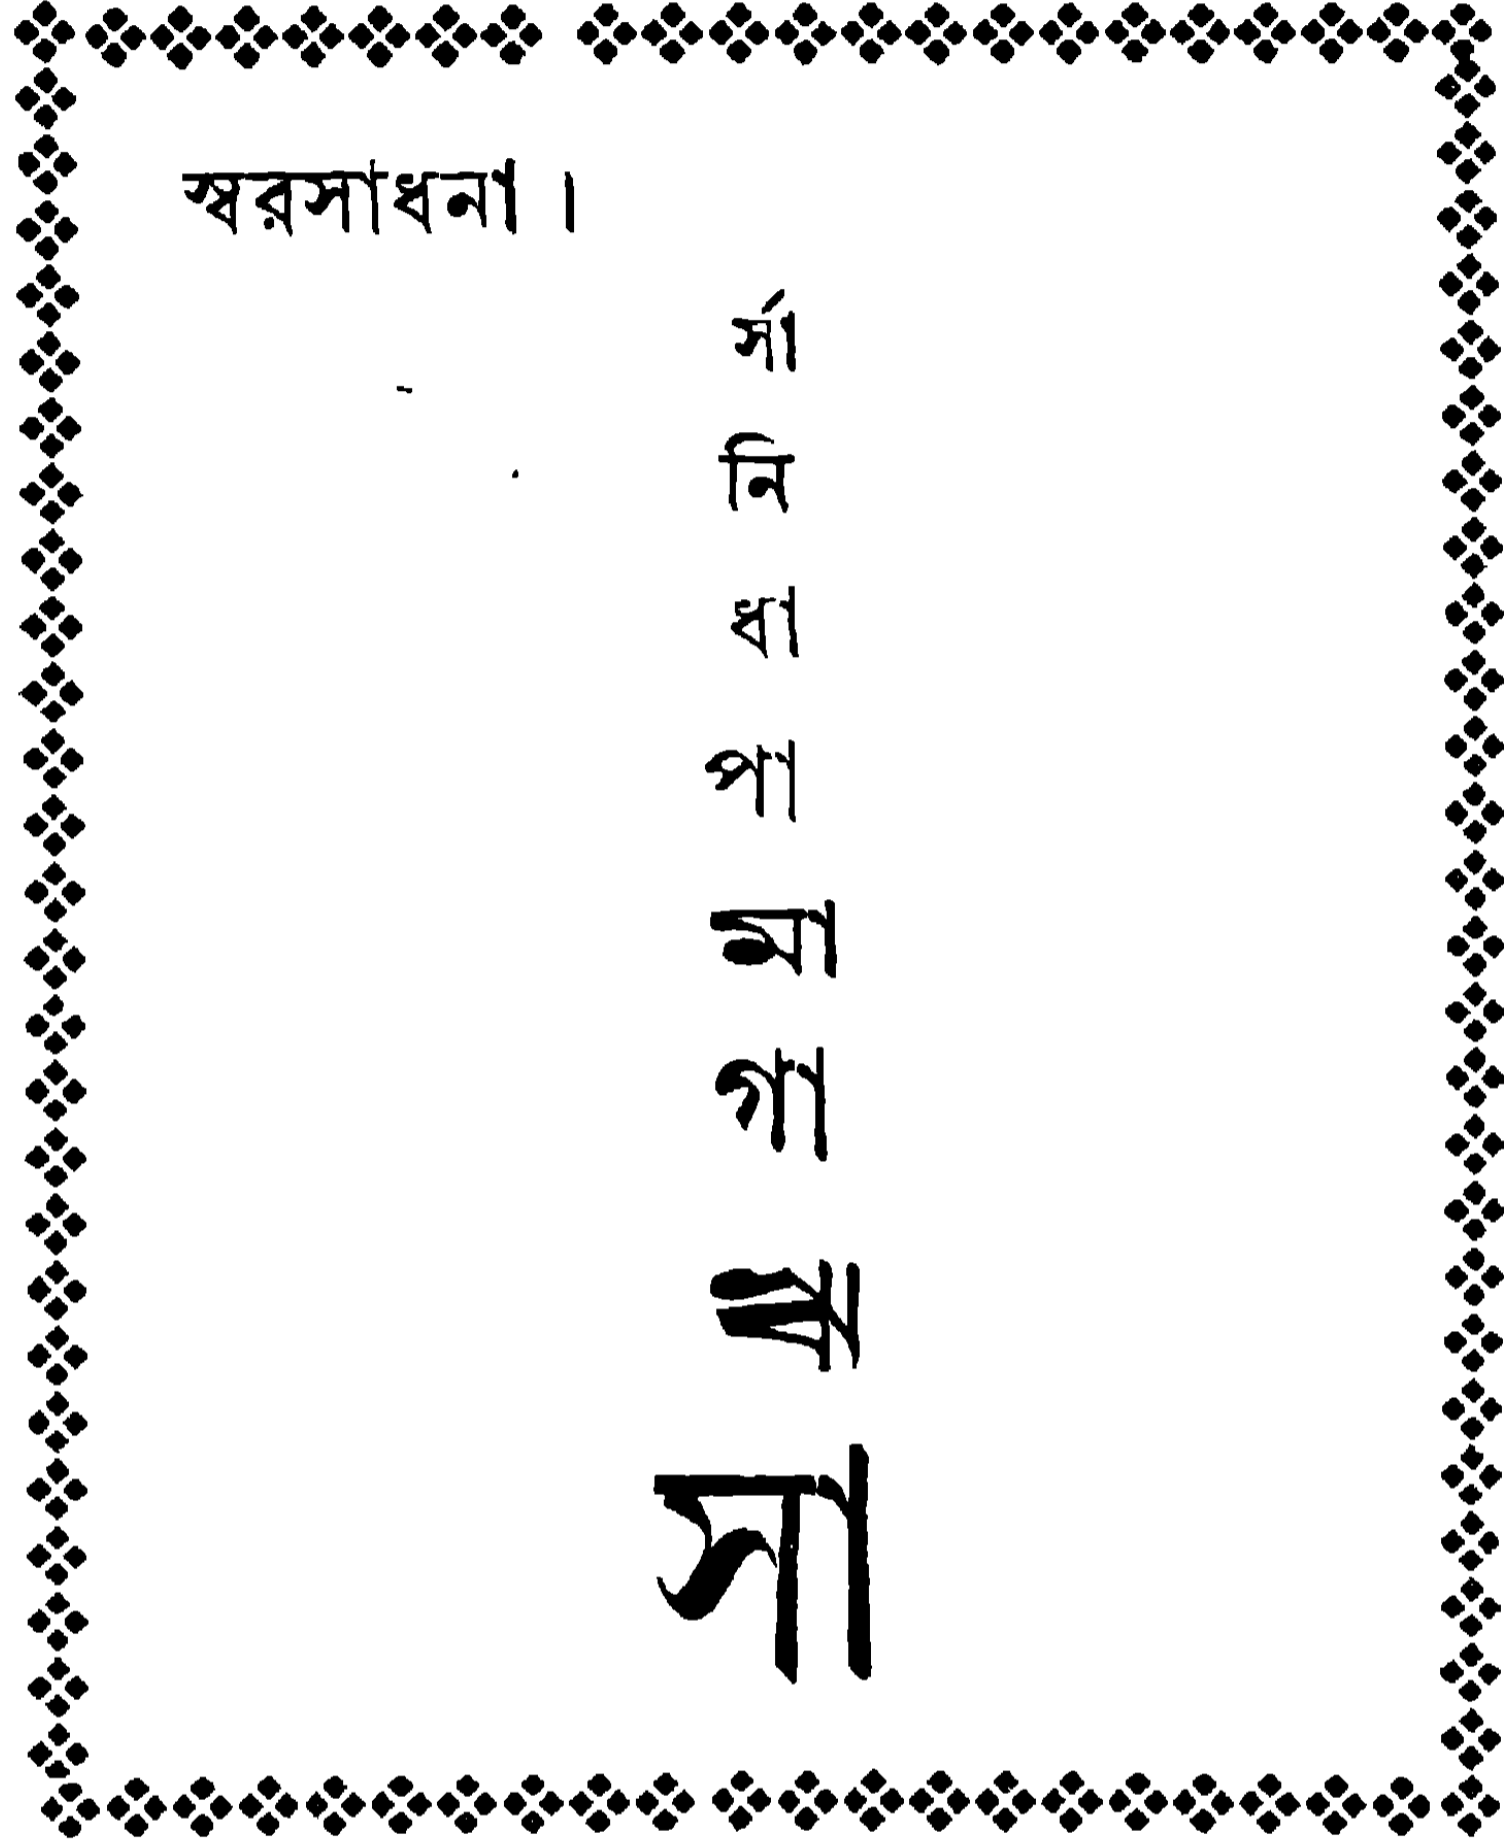 স্বরসাধনা ।
র্সা
নি
ধা
পা
মা
গা
ঋ
সা